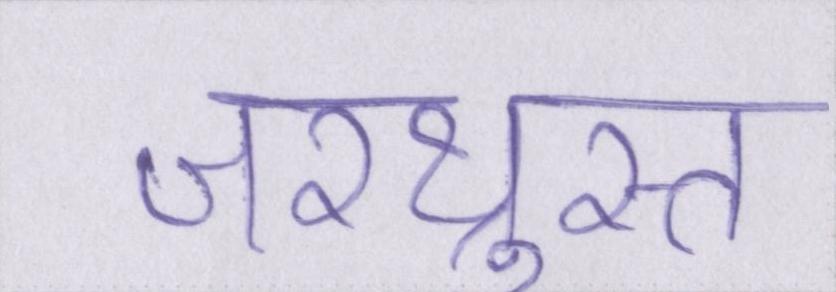 जरथ्रुस्त